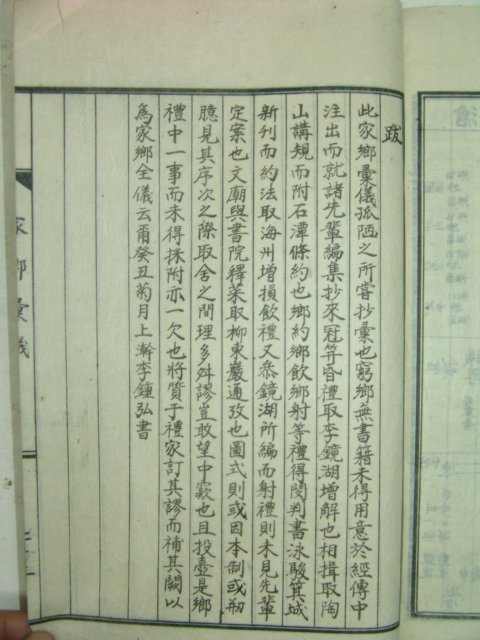 跋
此家鄕彙儀孤陋之所嘗抄彙也窮鄕無書籍未得用意於經傳中
注出而就諸先輩編集抄來冠笄昏禮取李鏡湖增解也相揖取陶
山講規而附石潭條約也鄕約鄕飮鄕射等禮得閔判書泳駿箕城
新刊而約法取海州增損飮禮又忝鏡湖所編而射禮則未見先輩
定案也文廟與書院釋菜取柳東巖通攷也圖式則或因本制或刱
臆見其序次之際取舍之間理多舛謬豈敢望中窾也且投壺是鄕
禮中一事而未得採附亦一欠也將質于禮家訂其謬而補其闕以
爲家鄕全儀云爾癸丑菊月上澣李鍾弘書
家鄕彙儀